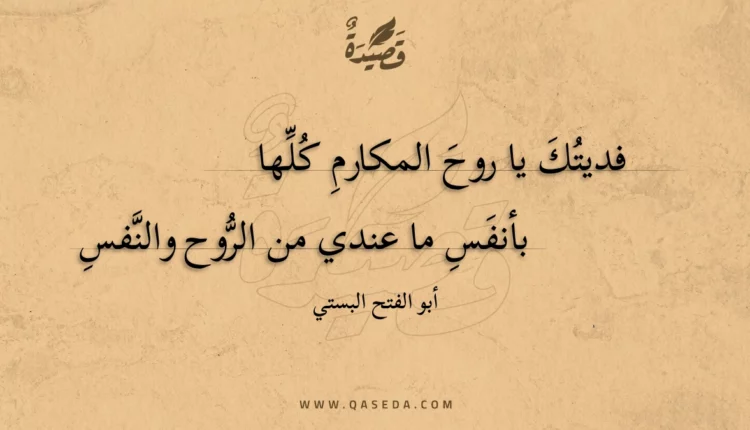 قَصِيْدَةٌ
فديتُكَ يا روحَ المكارمِ كُلِّها
بأنفَسِ ما عندي من الرُّوح والنَّفسِ
أبو الفتح البستي
WWW.QASEDA.COM